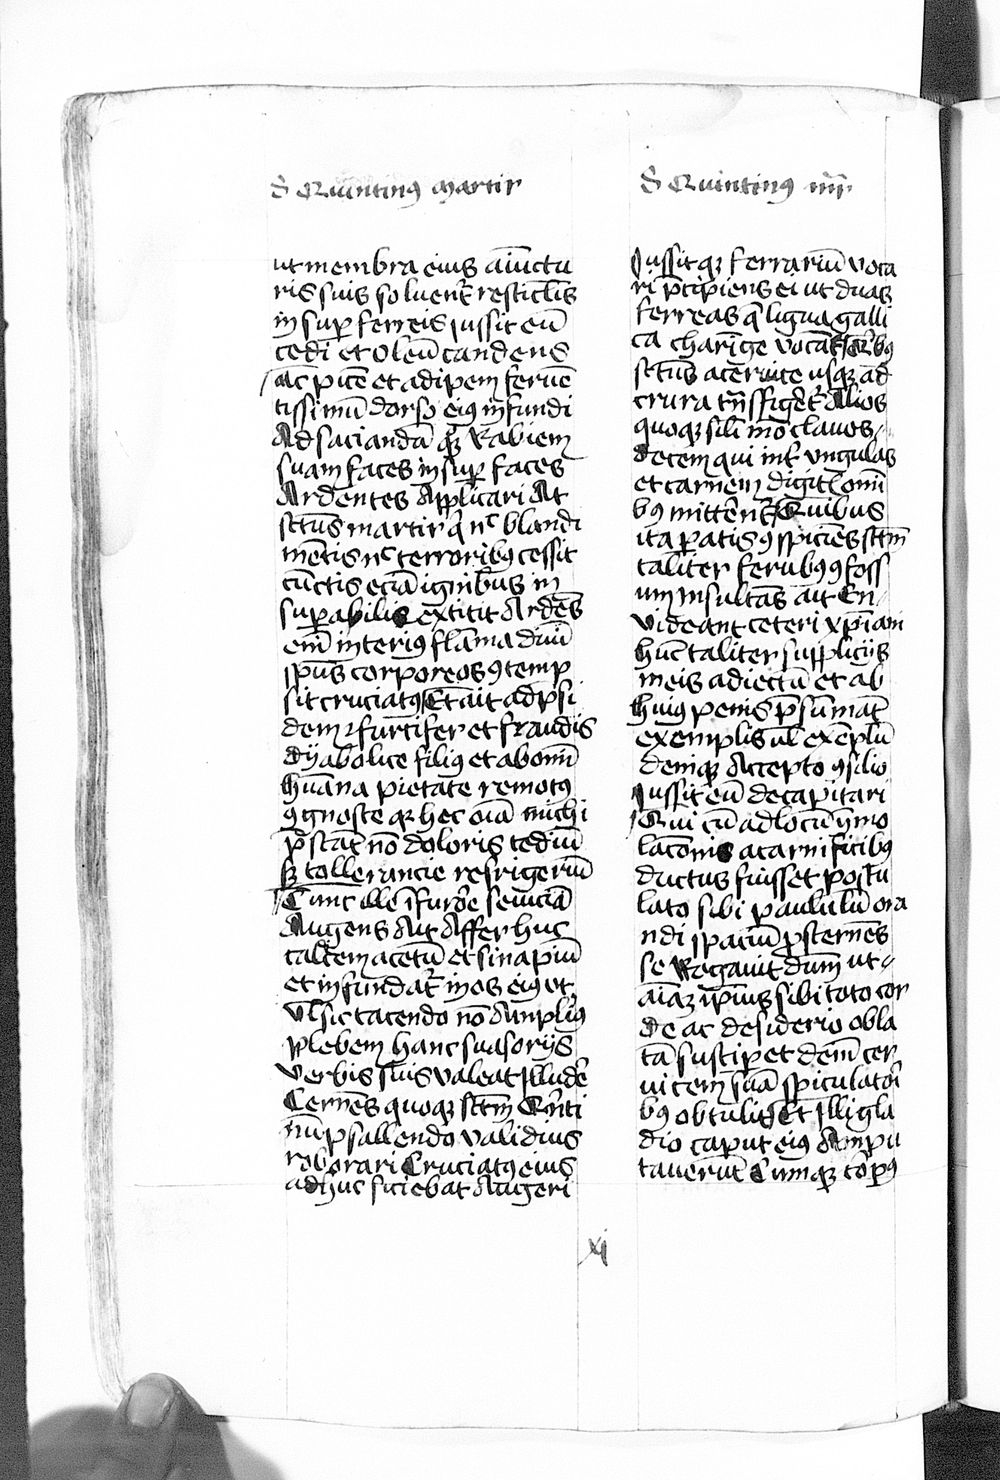 S Quintinus martir
ut membra eius a iunctu
ris suis soluerent resticulis
in sup ferreis jussit eū
cedi et oleū candens
ac picē et adipem feruē
tissimū dorso eius infundi
Ad saciandā q3 rabiem
suam faces in sup faces
Ardentes Applicari At
sctus martir q̄ nc blandi
mētis nc terroribus cessit
cūctis eciā ignibus in
superabilis extitit Ardēs
em̄ interius flāma diuī
spūs corporeos 9temp
sit cruciatus Et ait ad psi
dem furcifer et fraudis
dyabolice filius et ab omī
hūana pietate remotus
9gnosce q3 hec oīa michi
p̄stāt nō doloris tediū
s3 tollerancie refrigeriū
Tunc ille ī furore seuiciā
Augens Ait Affer huc
calcem acetū et sinapiū
et infundat̄ in os eius ut
ul̄ sic tacendo nō Amplius
plebem hanc suasorijs
verbis suis valeat Illudē
Cernēs quoq3 sctm Q̄nti
nū psallendo validius
roborari Cruciatus eius
adhuc sciebat Augeri
S Quintinus mr̄
Jussitq3 ferrariū voca
ri p̄cipiens ei ut duas
ferreas q̄ ligua galli
ca charinge vocāt
sctūs a ceruice usq3 ad
crura trnsfigeret Alios
quoq3 sili mō clauos
decem qui int̄ vngulas
et carnem digit̄ omī
bus mitterent Quibus
ita patis 9spiciēs sctm̄
taliter ferubus 9foss
um insultās ait En
videant ceteri xpīani
hūc taliter supplicijs
meis adiectū et ab
huius penis p̄sūmāt
exemplis ul̄ exēplū
demq3 Accepto 9silio
Jussit eū decapitari
Qui cū ad locū ymo
lacōnis a carnificibus
ductus fuisset postu
lato sibi paululū ora
ndi spaciū p̄sternēs
se Rogauit dūm ut
aīa3 ip̄ius sibi toto cor
de ac desiderio obla
tā susciperet demū cer
uicem suā spiculatorī
bus obtulit Et Illi gla
dio caput eius Ampu
tauerūt Cumq3 corpus
xj